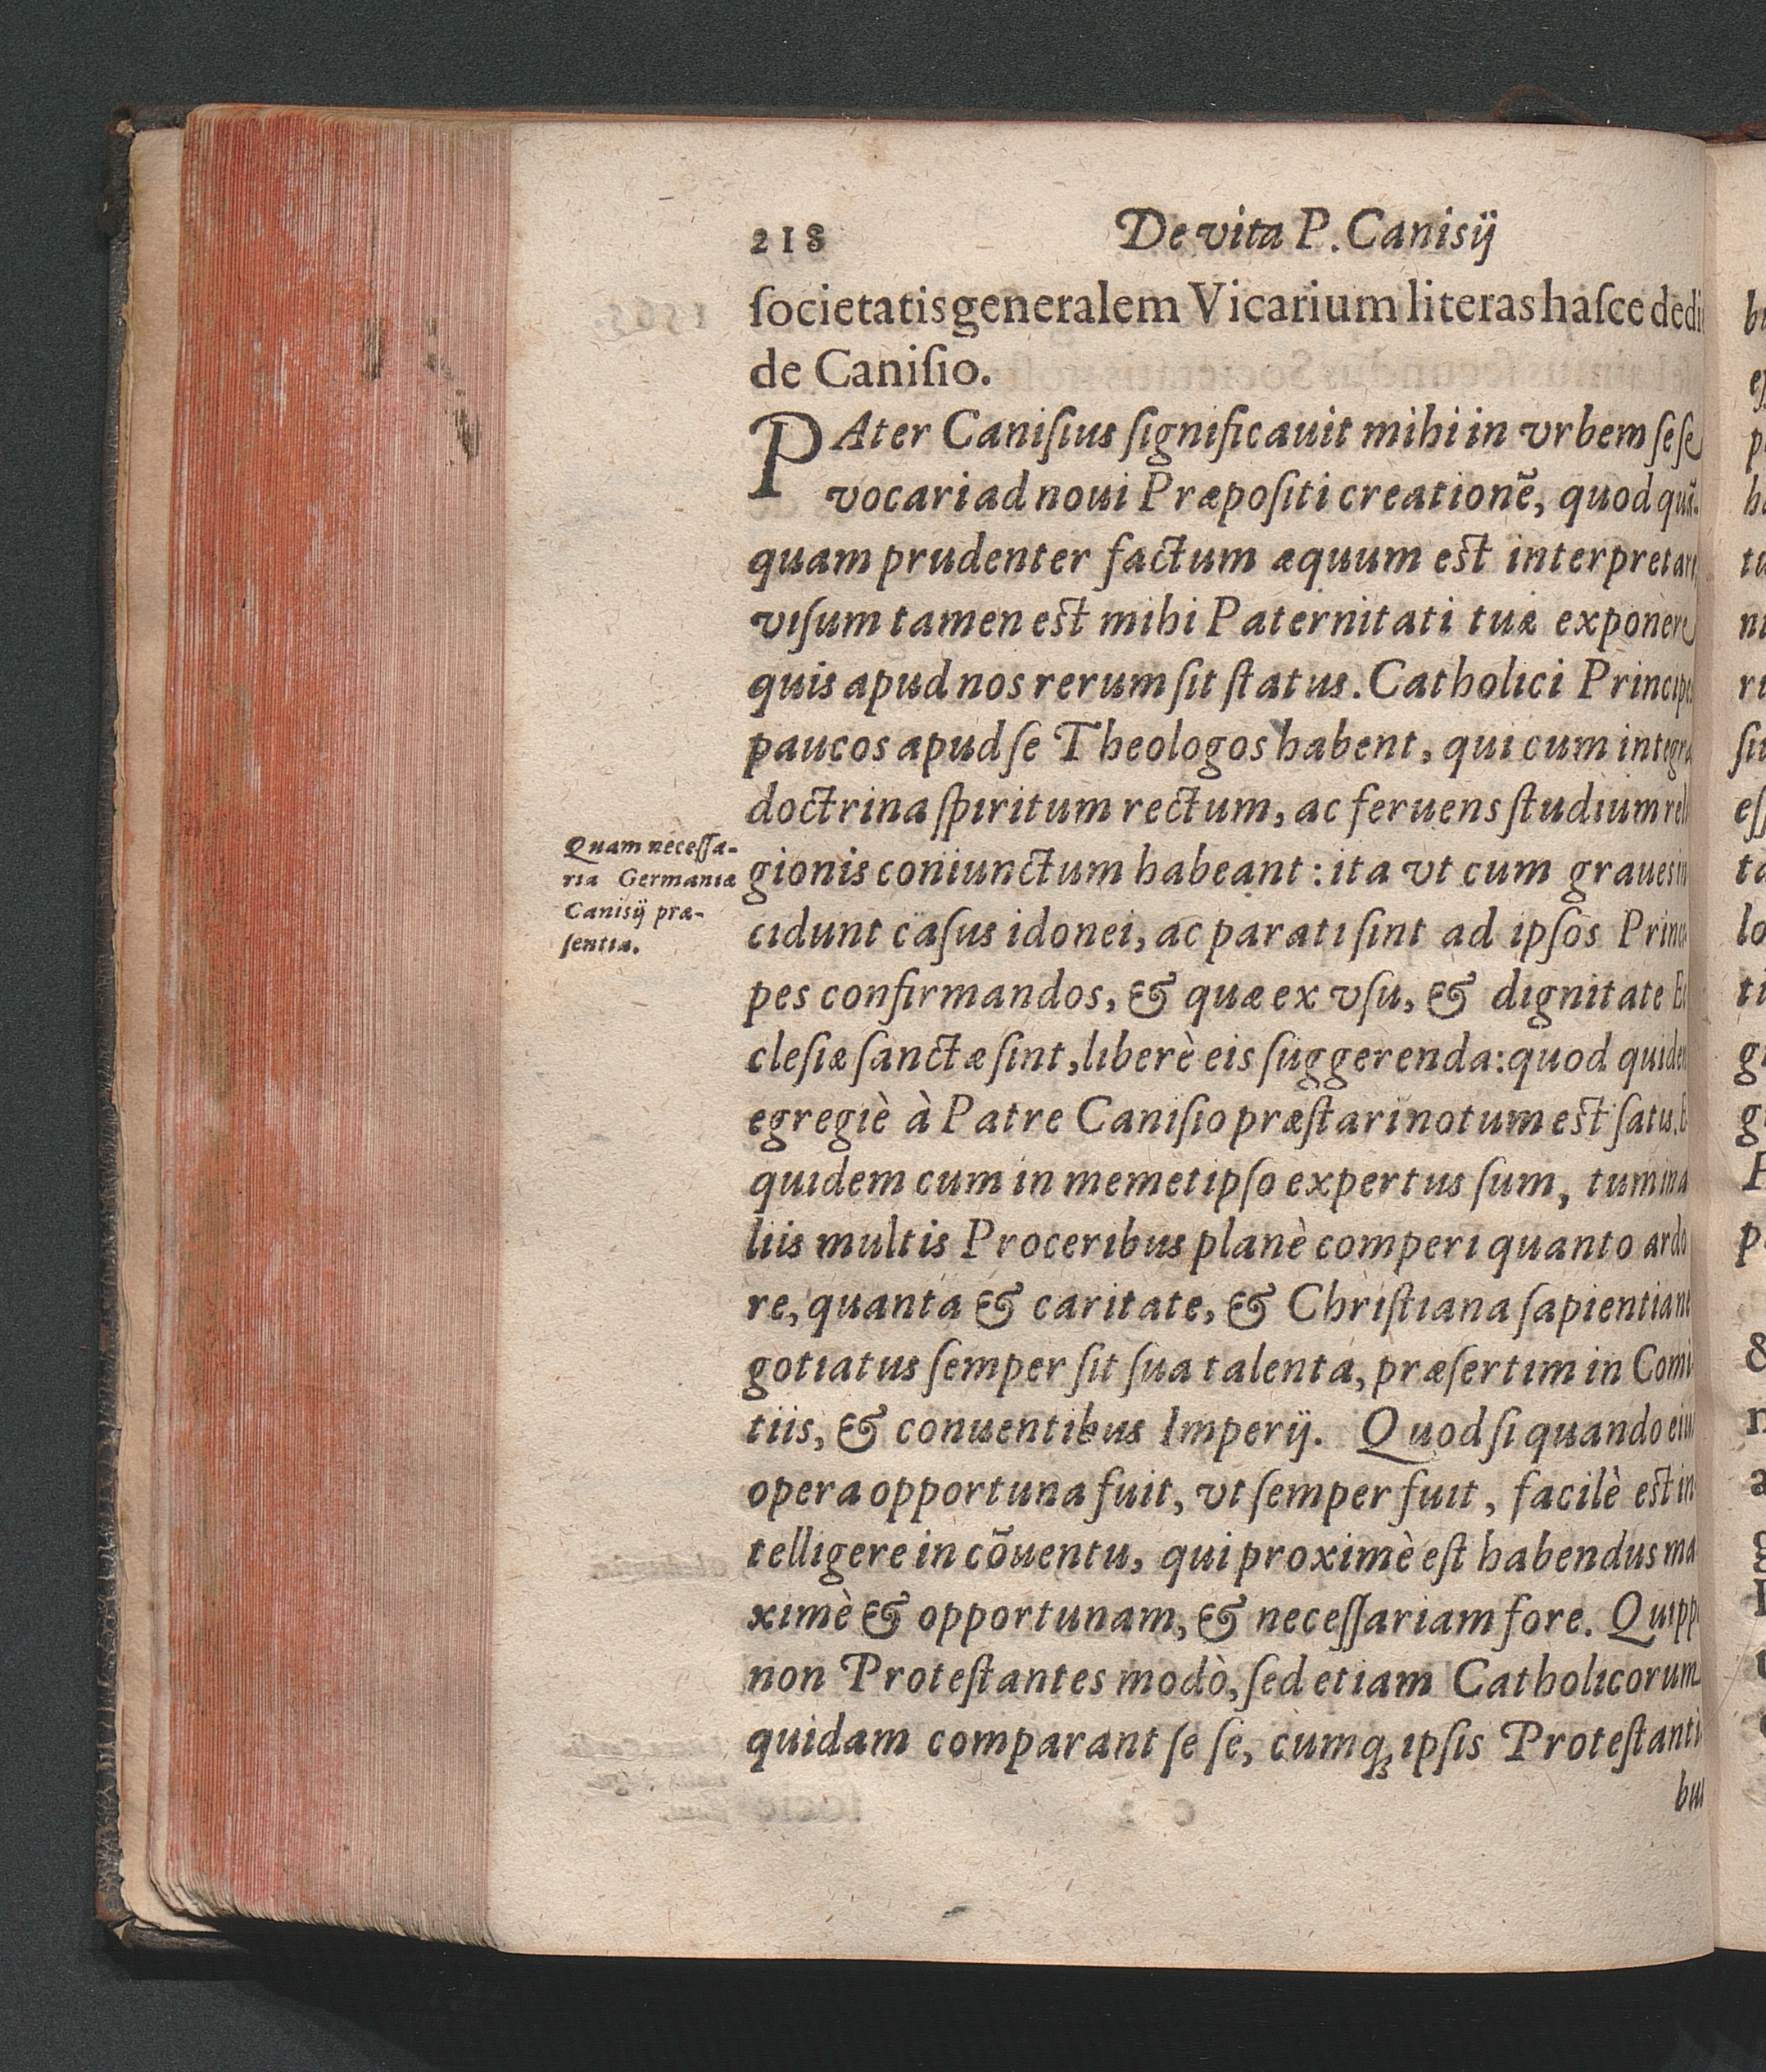 218 De vita P. Canisij
ſocietatis generalem Vicarium literas haſce dedi
de Caniſio.
PAter Caniſius ſignificauit mihi in vrbem ſeſe
vocari ad noui Præpoſiti creationē, quod quā-
quam prudenter factum æquum est interpretari,
viſum tamen est mihi Paternitati tuæ exponere
quis apud nos rerum ſit ſtatus. Catholici Principes
paucos apud ſe Theologos habent, qui cum integra
doctrina ſpiritum rectum, ac feruens ſtudium reli
Quam neceſſa-
ria Germaniæ
Canisij præ-
ſentia.
gionis coniunctum habeant: ita vt cum graues in
cidunt caſus idonei, ac parati ſint ad ipſos Princi
pes confirmandos, & quæ ex vſu, & dignitate Ec
cleſiæ ſanctæ ſint, liberè eis ſuggerenda: quod quidem
egregiè à Patre Caniſio præſtari notum est ſatis.
quidem cum in memetipſo expertus ſum, tum in a
liis multis Proceribus planè comperi quanto ardo
re, quanta & caritate, & Chriſtiana ſapientia ne
gotiatus ſemper ſit ſua talenta, præſertim in Comi
tiis, & conuentibus Imperij. Quod ſi quando eius
opera opportuna fuit, vt ſemper fuit, facilè est in
telligere in cōuentu, qui proximè eſt habendus ma
ximè & opportunam, & neceſſariam fore. Quippe
non Proteſtantes modò, ſed etiam Catholicorum
quidam comparant ſe ſe, cumq; ipſis Proteſtanti
bus